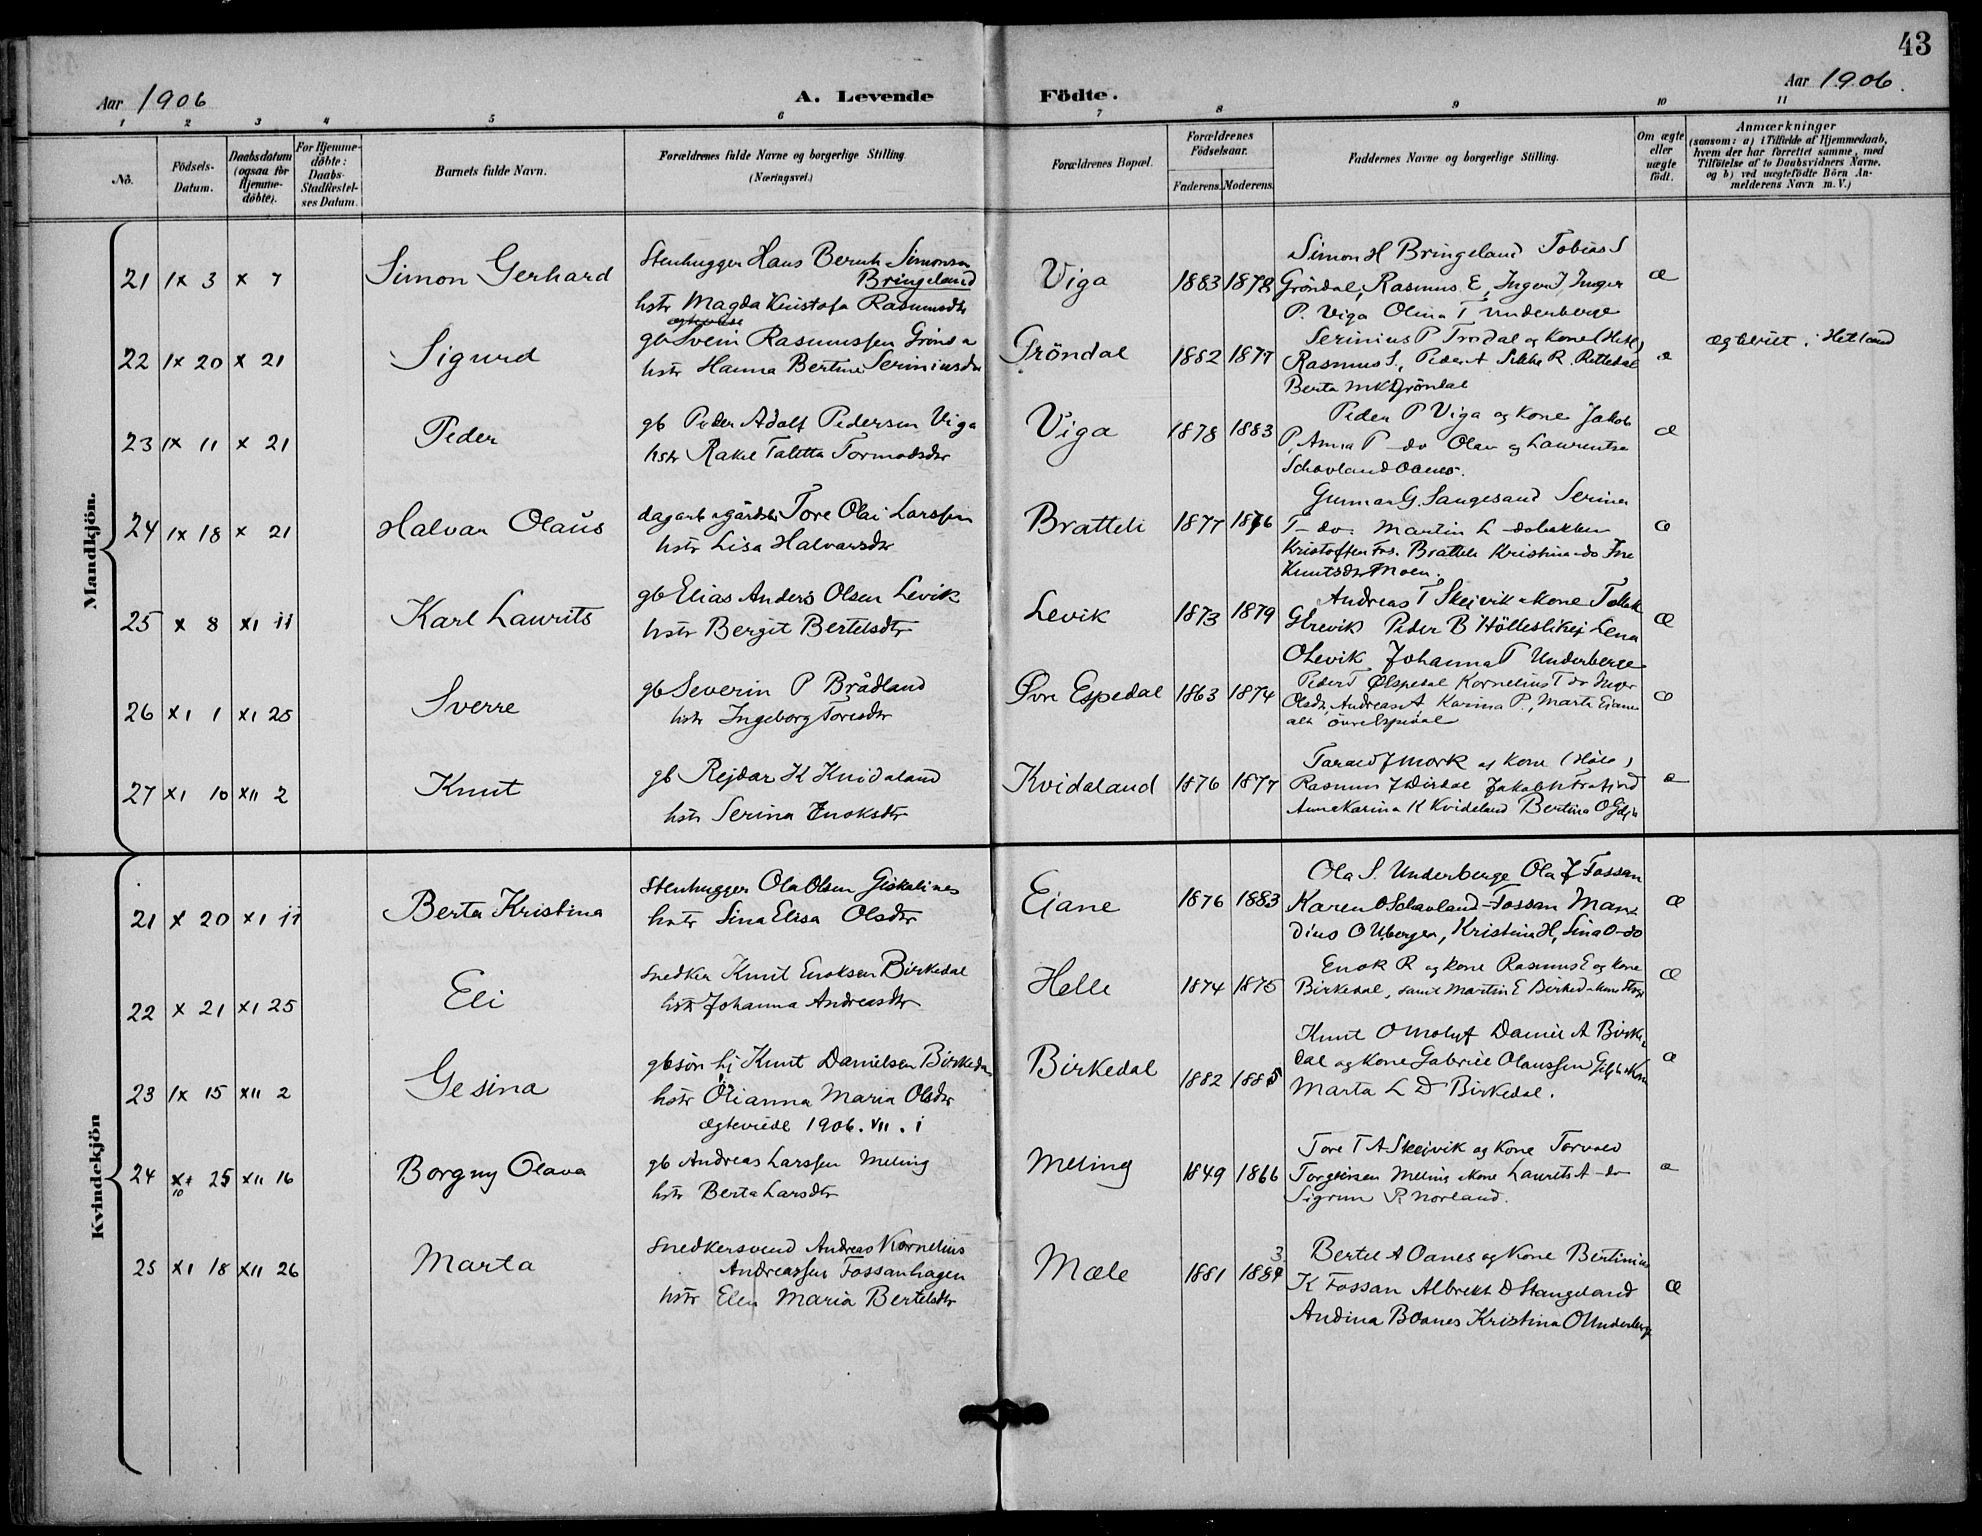 43
Aar 1906
A. Levende
Födte.
Aar 1906.
1 2 3 4 5 6 7 8 9 10 11
No.
Födsels-
Datum.
Daabsdatum
(ogsaa for
Hjemme-
döbte).
For Hjemme-
döbte:
Daabs-
Stadfæstel-
ses Datum.
Barnets fulde Navn.
Forældrenes fulde Navne og borgerlige Stilling.
(Næringsvei.)
Forældrenes Bopæl.
Forældrenes
Födselsaar.
Faderens. Moderens.
Faddernes Navne og borgerlige Stilling.
Om ægte
eller
uægte
födt.
Anmærkninger
(saasom: a) i Tilfælde af Hjemmedaab,
hvem der har forrettet samme, med
Tilföielse af to Daabsvidners Navne,
og b) ved uægtefödte Börn An-
melderens Navn m. V.)
Mandkjön.
21 IX 3 X 7 Simon Gerhard
Stenhugger Hans Bernh Simonsen
Bringeland
hstr Magda Kristofa Rasmusdtr
Viga 1883 1878
Simon H Bringeland Tobias S
Gröndal, Rasmus E, Inger J Inger
P. Viga Olina T Underberge
æ
22 IX 20 X 21 Sigurd
gb Svein Rasmussen Grönda
hstr Hanna Bertine Seriniusdtr
Gröndal 1882 1877
Serinius P Trodal og Kone (Hetl)
Rasmus S., Peder A Sikke R. Retledal
Berta MKD Gröndal
æ
ægteviet i Hetland
23 IX 11 X 21 Peder
gb Peder Adolf Pedersen Viga
hstr Rakel Taletta Tormodsdtr
Viga 1878 1883
Peder P Viga og Kone Jakob
P, Anna P do Olav og Laurentse
Schovland Oanes.
æ
24 IX 18 X 21 Halvar Olaus
dagarb gårdbr Tore Olai Larssen
hstr Lisa Halvarsdtr
Bratteli 1877 1876
Gunnar G. Sangesand Serina
T do. Martin L dobakken
Kristoffer Fos. Bratteli Kristina do Ine
Knutsdtr Moen.
æ
25 X 8 XI 11 Karl Laurits
gb Elias Anders Olsen Levik
hstr Bergit Bertelsdtr
Levik 1873 1879
Andreas T Skejvik Kone Tollak
G Levik Peder B Hölleslikej Lena
O Levik Johanna T Underberge
æ
26 XI 1 XI 25 Sverre
gb Severin P Brådland
hstr Ingeborg Toresdtr
Øvre Espedal 1863 1874
Peder T Ølspedal Kornelius T do Inger
Olsdtr, Andreas A Karina P., Marta Eiane
alle övre Espedal
æ
27 XI 10 XII 2 Knut
gb Rejdar K Kvidaland
hstr Serina Enoksdtr
Kvidaland 1876 1877
Tarald J Mork og Kone (Höle)
Rasmus J Dirdal Jakob H Frafjord
Anna Karina K Kvideland Bertina O Gilje
æ
Kvindekjön
21 X 20 XI 11 Berta Kristina
Stenhugger Ola Olsen Giskelines
hstr Sina Elisa Olsdtr
Eiane 1876 1883
Ola S. Underberge Ola J Fossan
Karen O Schavland Fossan Man-
dius O Uberger, Kristina H, Sina O do
æ
22 X 21 XI 25 Eli
Snedker Knut Enoksen Birkedal
hstr Johanna Andreasdtr
Helle 1874 1875
Enok R og Kone Rasmus E og Kone
Birkedal, samt Martin E Birked Kone
æ
23 IX 15 XII 2 Gesina
gbsön hj Knut Danielsen Birkedal
hstr Olianna Maria Olsdtr
Ægteviede 1906. VII. 1
Birkedal 1882 1885
Knut O Moluf Daniel A Birke
dal og Kone Gabriel Olaussen Gilje Kone
Marta L D Birkedal.
æ
24 10 25 XII 16 Borgny Olava
gb Andreas Larssen Meling
hstr Berta Larsdtr
Meling 1849 1866
Tore T A Skejvik og Kone Torvald
Torgersen Meling Kone Laurits A do
Sigrun P. Norland.
æ
25 XI 18 XII 26 Marta
Snedkersvend Andreas Kornelius
Andreassen Fossanhagen
hstr Elen Maria Bertelsdtr
Mæle 1881 1884 3
Bertel A Oanes og Kone Bertinius
K Fossan Albrekt D Stangeland
Andina B Oanes Kristina O Underberge
æ